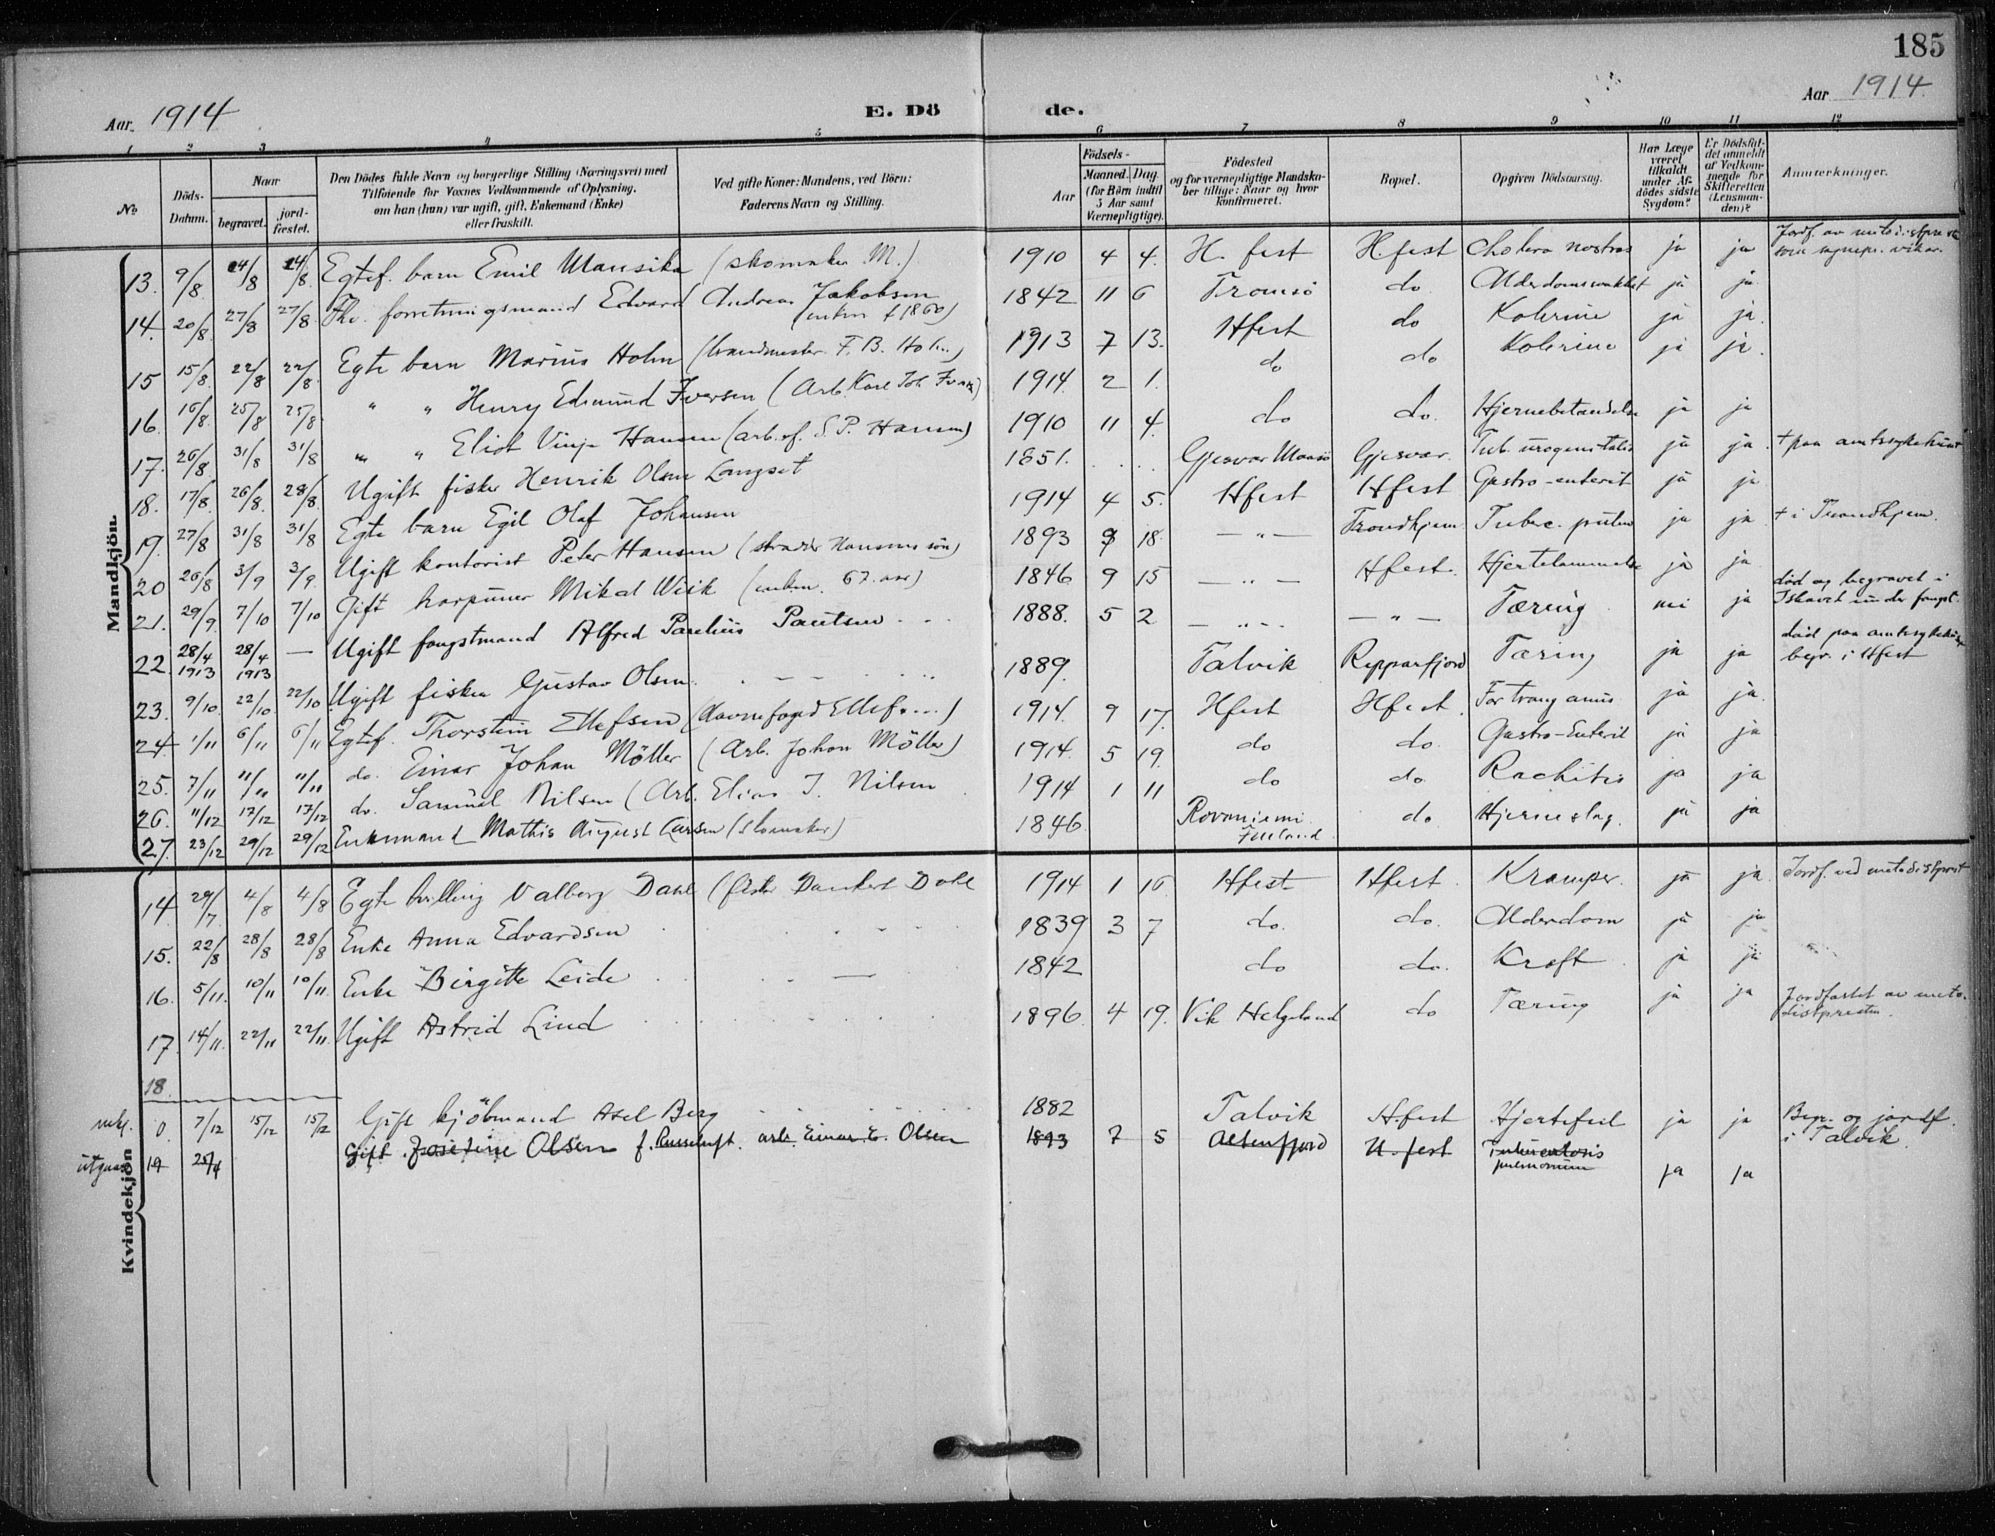 185
Aar 1914 E. Dö de. Aar 1914
1 2 3 4 5 6 7 8 9 10 11 12
No. Döds-Datum. Naar begravet. jord-fæstet. Den Dödes fulde Navn og borgerlige Stilling (Næringsvei) med Tilföiende for Voxnes Vedkommende af Oplysning, om han (hun) var ugift, gift, Enkemand (Enke) eller fraskilt. Ved gifte Koner: Mandens, ved Börn: Faderens Navn og Stilling. Födsels- Aar Maaned. Dag. (for Börn indtil 5 Aar samt Værnepligtige). Födested og for værnepligtige Mandskaber tillige: Naar og hvor konfirmeret. Bopæl. Opgiven Dödsaarsag. Har Læge været tilkaldt under Afdödes sidste Sygdom? Er Dödsfaldet anmeldt af Vedkommende for Skifteretten (Lensmanden)? Anmærkninger.
Mandkjön.
13. 9/8 14/8 14/8 Egtef. barn Emil Mansika (skomaker M.) 1910 4 4. H. fest H.fest Cholera nostras ja ja Jordf. av
14. 20/8 27/8 27/8 Fhv. forretningsmand Edvard Andreas Jakobsen 1842 11 6 Tromsö do. Alderdomssvakhet ja ja
15 15/8 22/8 22/8 Egte barn Marius Holm (brandmester F. B. Holm) 1913 7 13. Hfest do Kolerine ja ja.
16. 16/8 25/8 25/8 " " Henry Edmund Iversen (Arb. Karl Joh. 1914. 2 1. do do Kolerine ja ja.
17. 26/8 31/8 31/8 " " Eliot Vinje Hansen (arb. S. P. Hansen) 1910 11 4. do do. Hjernebetændelse ja ja
18. 17/8 26/8 28/8 Ugift fisker Henrik Olsen Langset 1851. Gjesvær Maasö Gjesvær. Tub. urogenitalis ja ja. + paa amtssykehuset
19. 27/8 31/8 31/8 Egte barn Egil Olaf Johansen 1914 4 5. Hfest Hfest Gastro-enterit ja ja
20 26/8 3/9 3/9. Ugift kontorist Peter Hansen ( Hansens sön) 1893 9 18. — " — Trondhjem Tuberc. pulm ja ja + i Trondhjem.
21. 29/9. 7/10 7/10 Gift harpuner Mikal Wiik 67. aar) 1846 9 15 — " — Hfest. Hjertelammelse ja ja
22. 28/4 1913 28/4 1913 — Ugift fangstmand Alfred Paulius Paulsen 1888. 5 2 — " — — " — Tæring nei ja död og begravet i Ishavet under fangst.
23. 9/10. 22/10. 22/10 Ugift fisker Gustav Olsen. 1889. Talvik Repparfjord Tæring ja ja död paa amtssykehuset begr. i Hfest
24 1/11 6/11 6/11 Egtef. Thorstein Ellefsen (Havnefoged 1914. 9 17. Hfest Hfest. For trang anus ja ja.
25. 7/11 11/11 11/11 do. Einar Johan Möller (Arb. Johan Möller) 1914. 5 19. do do. Gastro-Enterit ja ja
26. 11/12 17/12 17/12 do. Samuel Nilsen (Arb. Elias J. Nilsen 1914 1 11 do do Rachitis ja ja
27. 23/12 29/12 29/12 Enkemand Mathis August Larsen (skomaker) 1846. Rovaniemi Finland. do. Hjerneslag. ja ja
Kvindekjön
14 29/7. 4/8 4/8 Egte tvilling Valborg Dahl (fisker Dankert Dahl 1914 1 16 Hfest Hfest. Kramper. ja ja Jordf. ved metodistprest
15. 22/8 28/8 28/8 Enke Anna Edvardsen 1839 3 7 do. do. Alderdom ja ja
16. 5/11. 10/11 10/11. Enke Birgitte Leide — 1842 do do. Kræft ja ja
17. 14/11. 22/11 22/11. Ugift Astrid Lind 1896. 4 19. Vik Helgeland do Tæring ja ja Jordfæstet av metodistpresten.
18.
mk. 0. 7/12 15/12 15/12 Gift kjöbmand Axel Berg 1882 Talvik H.fest Hjertefeil ja ja Begr. og jordf. i Talvik.
utgaar 19 25/4 Gift Josefine Olsen f. Russeluft. arb. Einar E. Olsen 1893 7 5 Altenfjord H. fest Tuberculosis pulmonum ja ja